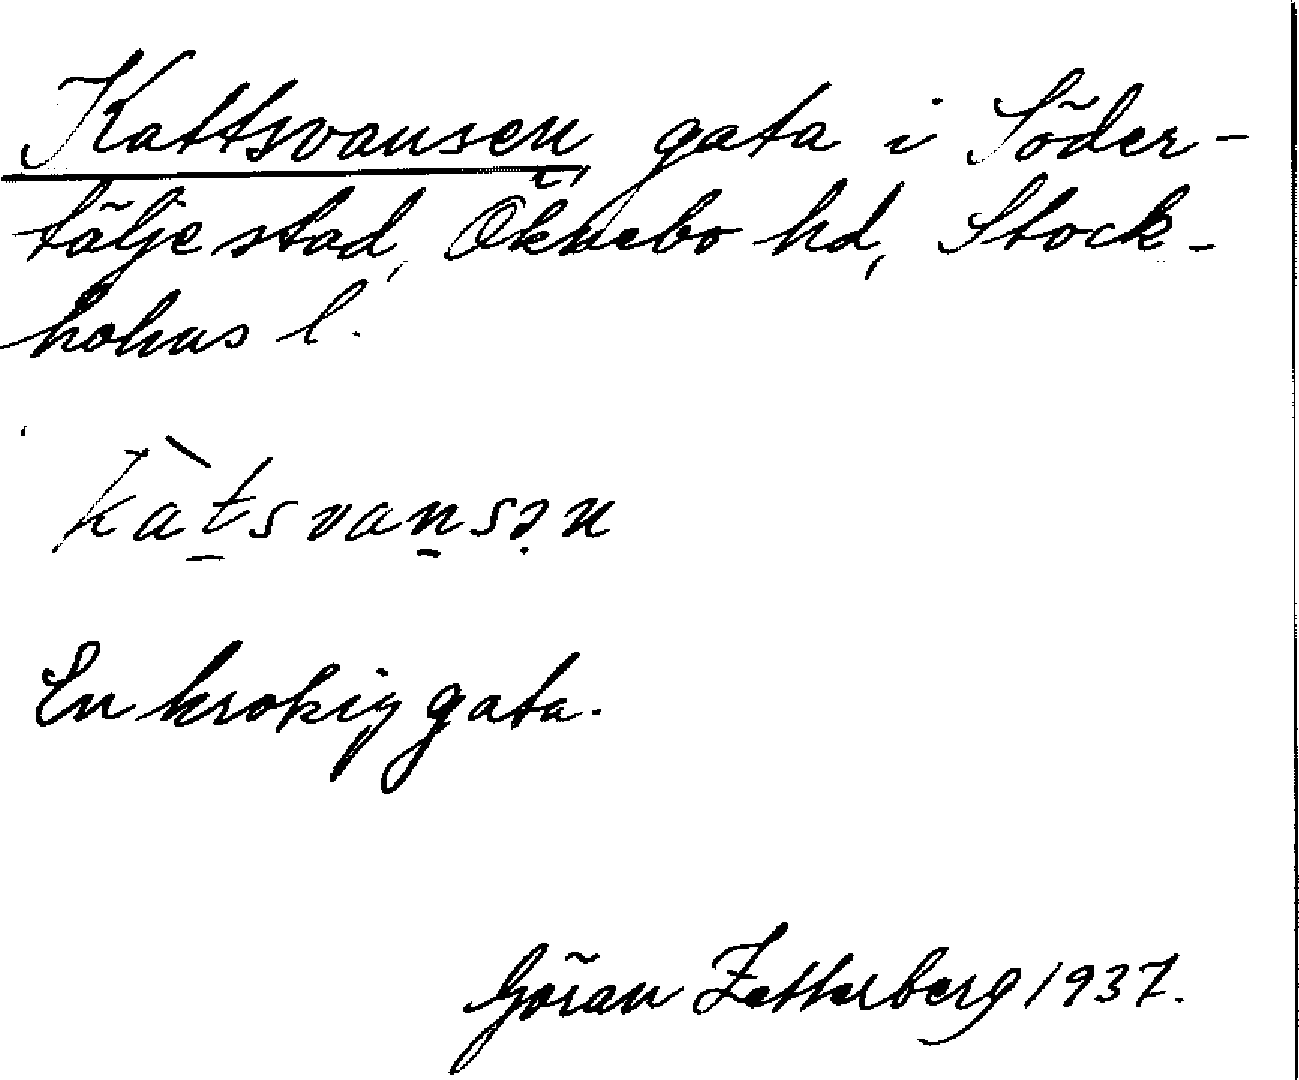 Kattsvansen, gata i Söder-
tälje stad, Öknebo hd, Stock-
holms l.
kàt̠svan̠sə̣n
En krokig gata.
Göran Zetterberg 1937.